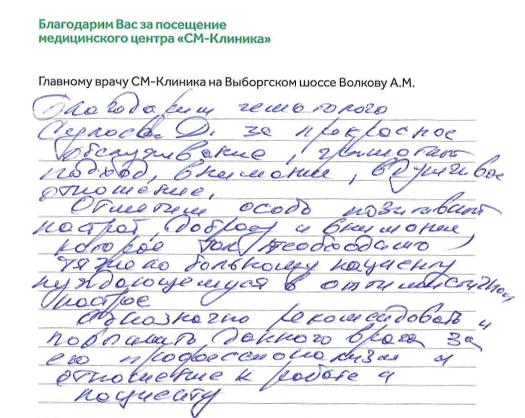 Благодарим Вас за посещение
медицинского центра «СМ-Клиника»
Главному врачу СМ-Клиника на Выборгском шоссе Волкову А.М.
Благодарим гематолога
Д. за прекрасное
обслуживание, грамотный
подход, внимание, вдумчивое
отношение.
Отметим особо позитивный
настрой, доброту и внимание,
которое так необходимо
тяжело больному пациенту
нуждающемуся в оптимистичном
настрое
Однозначно рекомендовать и
данного врача за
его профессионализм и
отношение к работе и
пациенту